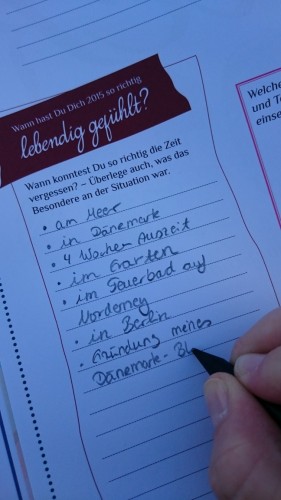 Wann hast Du Dich 2015 so richtig
lebendig gefühlt?
Wann konntest Du so richtig die Zeit
vergessen? – Überlege auch, was das
Besondere an der Situation war.
• am Meer
• in Dänemark
• 4 Wochen Auszeit
• im Garten
• im Feuerbad auf
Norderney
• in Berlin
• Gründung meines
Dänemark- Bl
Welche
und T
einse